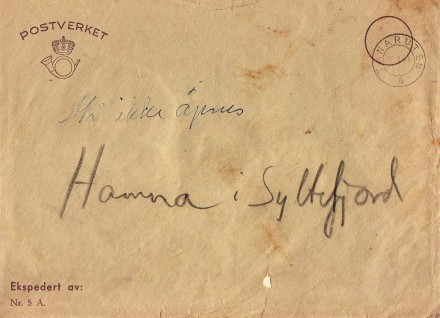 POSTVERKET
Må ikke åpnes
Hamna i Syltefjord
Ekspedert av:
Nr. 5 A.